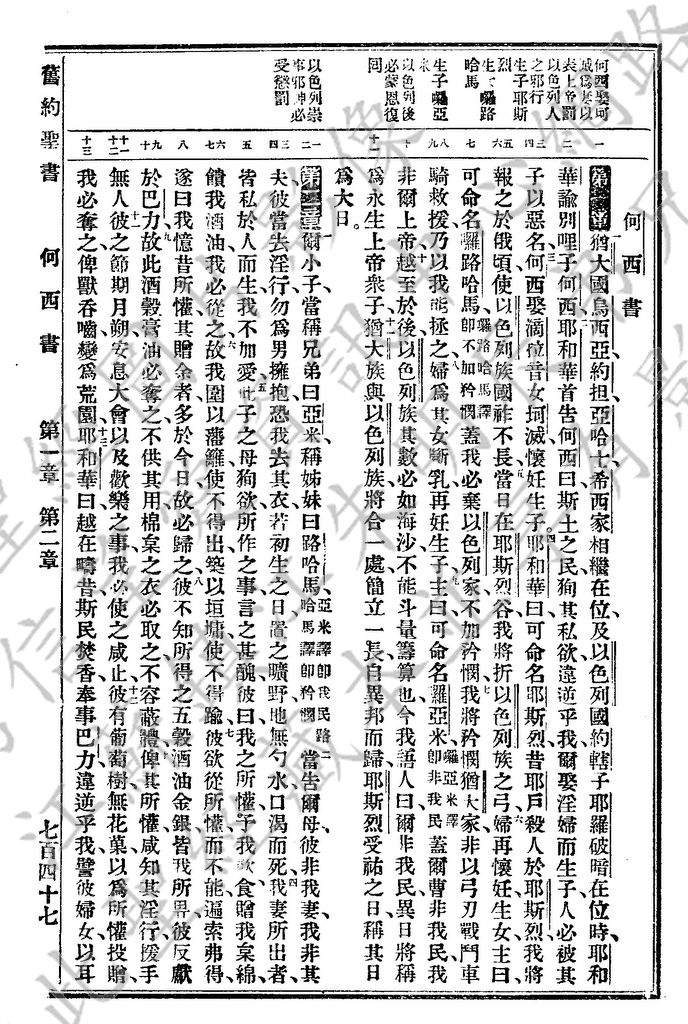 何西書
第一章猶大國烏西亞約担亞哈士希西家相繼在位及以色列國約轄子耶羅破暗在位時耶和
華諭別哩子何西耶和華首告何西曰斯土之民狥其私欲違逆乎我爾娶淫婦而生子人必被其
子以惡名何西娶滴拉音女坷滅懷妊生子耶和華曰可命名耶斯烈昔耶戶殺人於耶斯烈我將
報之於俄頃使以色列族國祚不長當日在耶斯烈谷我將折以色列族之弓婦再懷妊生女主曰
可命名囉路哈馬囉路哈馬譯即不加矜憫蓋我必棄以色列家不加矜憫我將矜憫猶大家非以弓刃戰鬥車
騎救援乃以我能拯之婦爲其女斷乳再妊生子主曰可命名囉亞米囉亞米譯即非我民蓋爾曹非我民我
非爾上帝越至於後以色列族其數必如海沙不能斗量籌算也今我語人曰爾非我民異日將稱
爲永生上帝衆子猶大族與以色列族將合一處簡立一長自異邦而歸耶斯烈受祜之日稱其日
爲大日
第二章爾小子當稱兄弟曰亞米稱姊妹曰路哈馬亞米譯即我民路哈馬譯即矜憫當告爾母彼非我妻我非其
夫彼當去淫行勿爲男擁抱恐我去其衣若初生之日置之曠野地無勺水口渴而死我妻所出者
皆私於人而生我不加愛此子之母狥欲所作之事言之甚醜彼曰我之所懽予我飲食贈我枲綿
饋我酒油我必從之故我圍以藩籬使不得出築以垣墉使不得踰彼欲從所懽而不能遍索弗得
遂曰我憶昔所懽其贈余者多於今日故必歸之彼不知所得之五穀酒油金銀皆我所畀彼反獻
於巴力故此酒穀膏油必奪之不供其用棉枲之衣必取之不容蔽體俾其所懽咸知其淫行援手
無人彼之節期月朔安息大會以及歡樂之事我必使之咸止彼有葡萄樹無花菓以爲所懽投贈
我必奪之俾獸吞嚙變爲荒園耶和華曰越在疇昔斯民焚香奉事巴力違逆乎我譬彼婦女以耳
何西娶坷滅爲妻以表上帝罰以色列人之邪行
生子耶斯烈
生女囉路哈馬
生子囉亞米
以色列後必蒙恩復回
以色列崇事邪神必受懲罰
舊約聖書 何西書 第一章 第二章 七百四十七